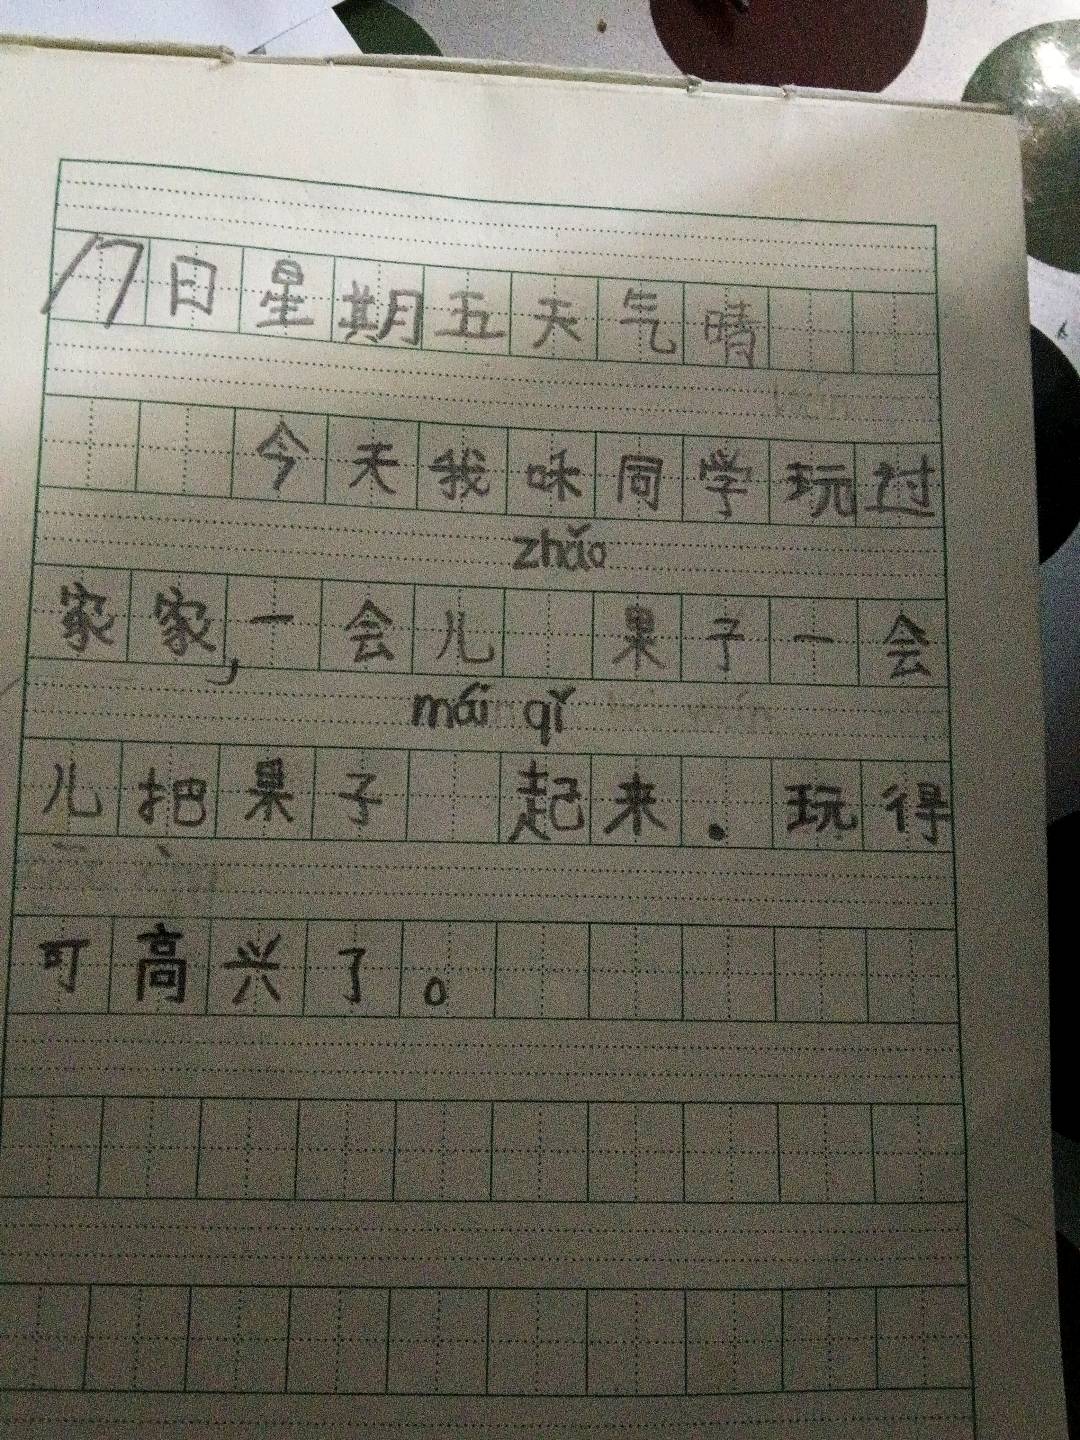 17日星期五天气晴
今天我咊同学玩过
zhǎo
家家,一会儿 果子一会
mái qǐ
儿把果子 起来.玩得
可高兴了。